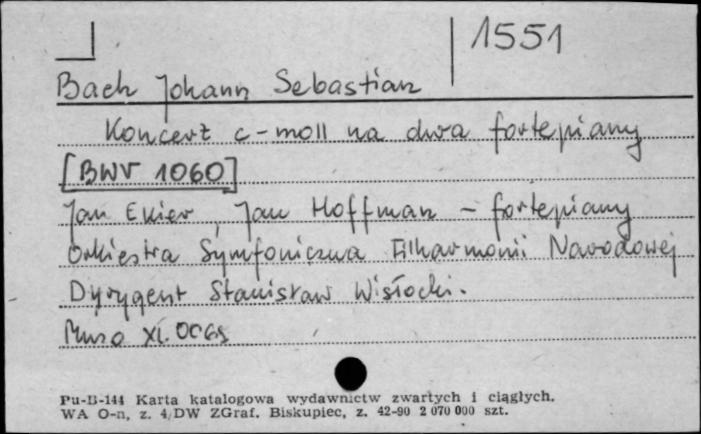 1551
Bach Johann Sebastian
Koncert c-moll na dwa fortepiany
[BWV 1060]
Jan Ekier, Jan Hoffman - fortepiany
Orkiestra Symfoniczna Filharmonii Narodowej
Dyrygent Stanisław Wisłocki.
Muza XL 0065
Pu-B-144 Karta katalogowa wydawnictw zwartych i ciągłych.
WA O-n, z. 4/DW ZGraf. Biskupiec, z. 42-90 2 070 000 szt.